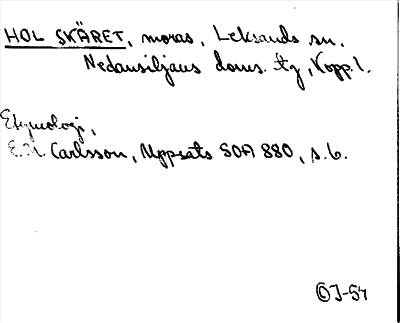 HOL SKÄRET, moras, Leksands sn,
Nedansiljans doms. tg, Kopp. l.
Etymologi,
E.N. Carlsson, Uppsats SOA 880, s. 6.
OJ-54